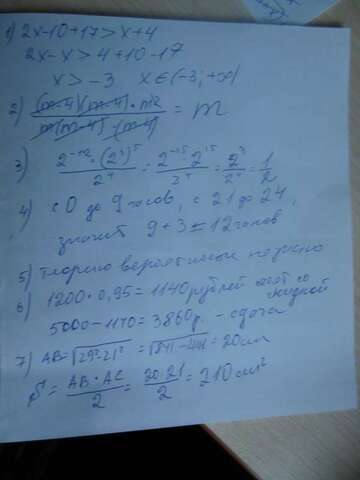 1) 2x-10+17>x+4
2x-x>4+10-17
x>-3 x∈(-3;+∞)
2) (m-4)(m-4)·m² / m(m-4)·(m-4) = m
3) 2⁻¹²·(2³)⁵ / 2⁴ = 2⁻¹⁵ 2¹⁵ / 2⁴ = 2³ / 2⁴ = 1/2
4) с 0 до 9 часов, с 21 до 24,
значит 9+3=12 часов
5) теорию вероятности не
6) 1200·0,95=1140 рублей со скидкой
5000-1140=3860р. - сдача
7) AB=√29²-21² = √841-441 = 20см
S = AB·AC / 2 = 20·21 / 2 = 210 см²